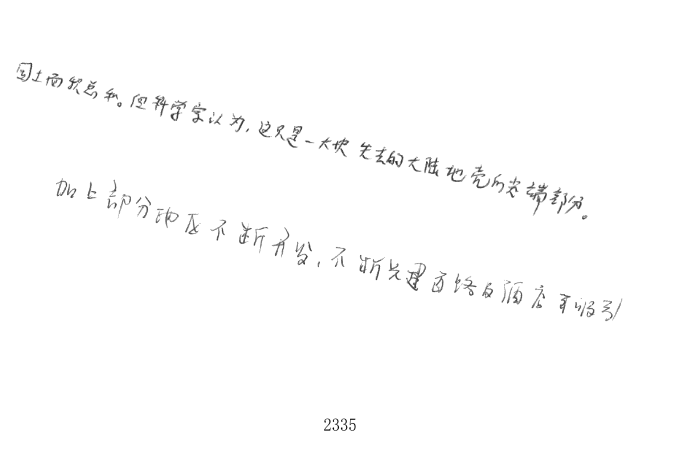 国土面积总和。但科学家认为，这只是一大块失去的大陆地壳的尖端部分。
加上部分地区不断开发，不断兴建道路及酒店来吸引
2335